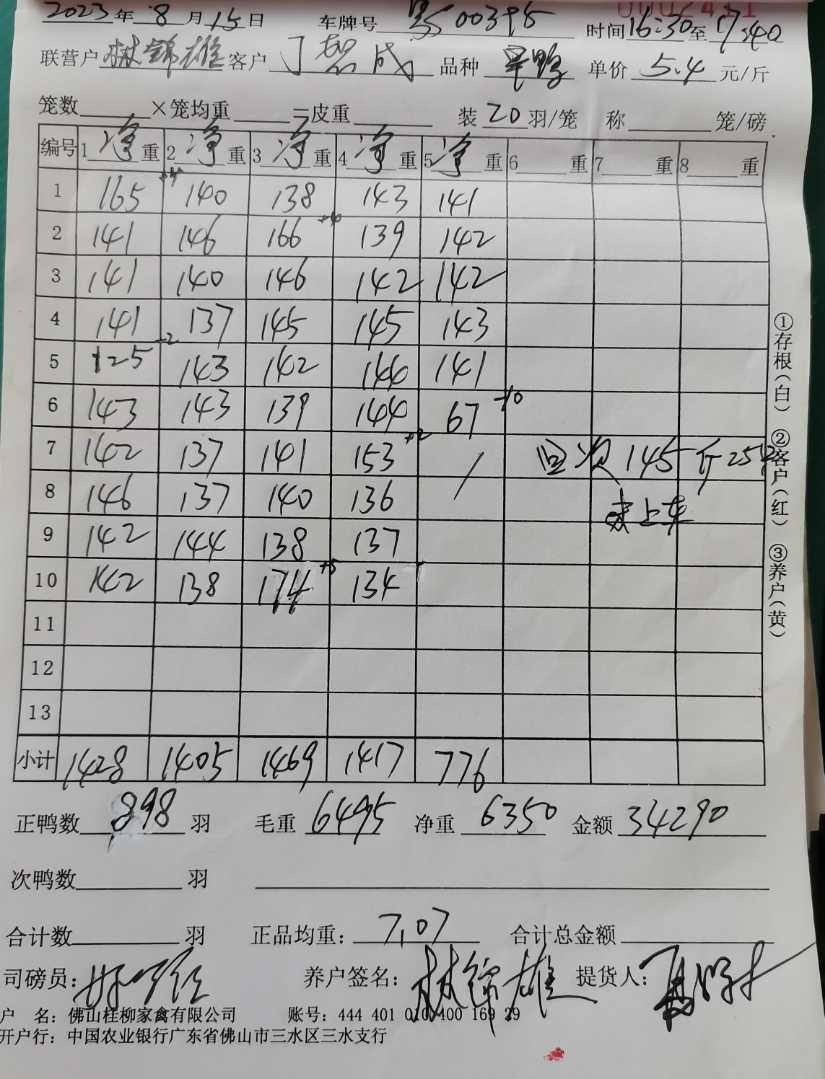 2023 年 8 月 15 日 车牌号 粤 00395 时间 16:30 至 17:40
联营户 林锦雄 客户 丁智成 品种 旱鸭 单价 5.4 元/斤
笼数 ×笼均重 =皮重 装 20 羽/笼 称 笼/磅
编号 1 净 重 2 净 重 3 净 重 4 净 重 5 净 重 6 重 7 重 8 重
1 165 +4 140 138 143 141
2 141 146 166 139 142
3 141 140 146 142 142
4 141 137 145 145 143
5 125 -2 143 142 144 141
6 143 143 139 144 67 -10
7 142 137 141 153 +2 / 145斤
8 146 137 140 136 未上车
9 142 144 138 137
10 142 138 174 +5 134
11
12
13
小计 1428 1405 1469 1417 776
①存根(白) ②客户(红) ③养户(黄)
正鸭数 898 羽 毛重 6495 净重 6350 金额 34290
次鸭数 羽
合计数 羽 正品均重: 7.07 合计总金额
司磅员: 养户签名: 林锦雄 提货人:
户 名: 佛山桂柳家禽有限公司 账号: 444 401 010 400 169 29
开户行: 中国农业银行广东省佛山市三水区三水支行